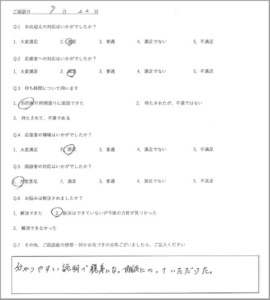 ご面談日 9月22日
Q.1 お出迎えの対応はいかがでしたか？
1. 大変満足 2. 満足 3. 普通 4. 満足でない 5. 不満足
Q.2 応接室への対応はいかがでしたか？
1. 大変満足 2. 満足 3. 普通 4. 満足でない 5. 不満足
Q.3 待ち時間について伺います
1. お約束の時間通りに面談できた 2. 待たされたが、不満ではない
3. 待たされて、不満である
Q.4 応接室の環境はいかがでしたか？
1. 大変満足 2. 満足 3. 普通 4. 満足でない 5. 不満足
Q.5 面談者の対応はいかがでしたか？
1. 大変満足 2. 満足 3. 普通 4. 満足でない 5. 不満足
Q.6 お悩みは解決されましたか？
1. 解決できた 2. 解決はできていないが今後の方針が見つかった
3. 解決できなかった
Q.7 その他、ご面談後の感想・何かお気づきの点等ございましたら、ご記入ください
分かりやすい説明で親身になって相談にのっていただけた。